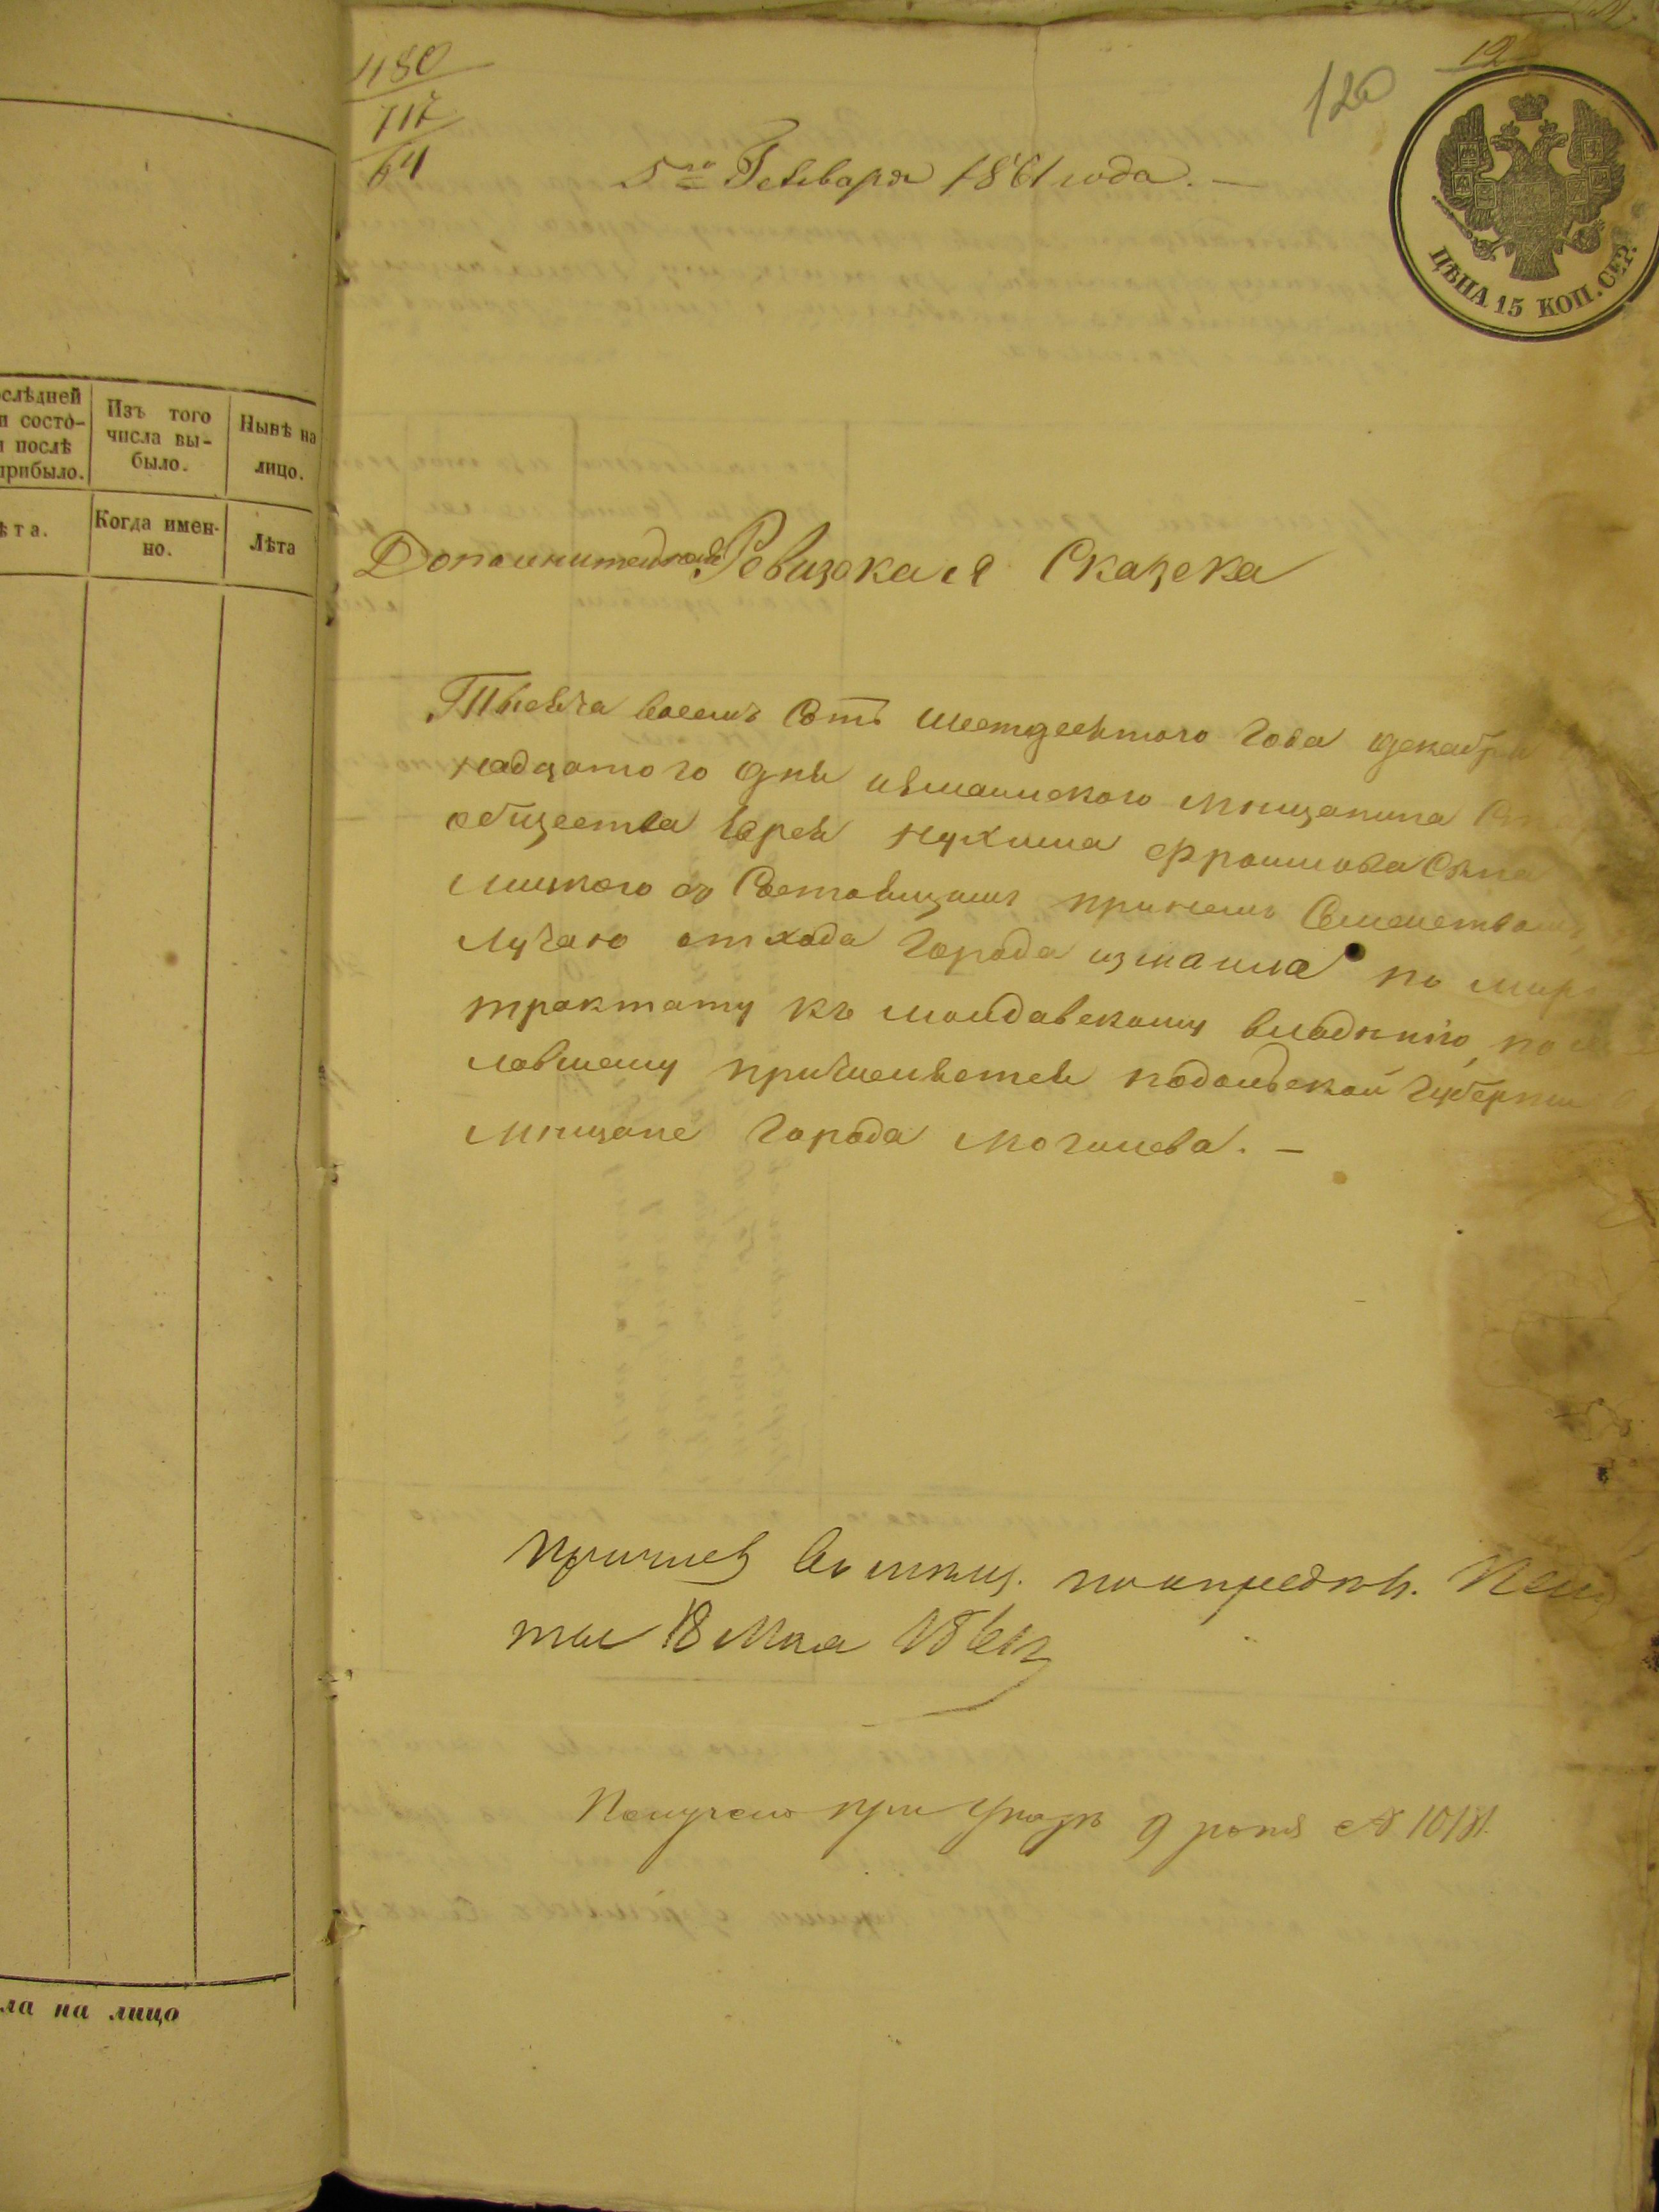 480
717
64
120
12
ЦѢНА 15 КОП. СЕР.
5го Генваря 1861 года. —
ослѣдней
и состо-
и послѣ
прибыло.
Изъ того
числа вы-
было.
Нынѣ на
лицо.
ѣта.
Когда имен-
но.
Лѣта
Дополнительная Ревизская Сказска
Тысяча восемъ Сотъ шестдесятого Года декабря
надцатого дня измаилского мещанина
общества Еврея Нухима Фроимова Сына
лицкого съ Состоящимъ при немъ Семействомъ,
лучаю отхода Города измаила по мир
трактату къ молдавскому владѣнію, по
лавшему причислится подольской Губернии
мѣщане Города могилева. —
причисл въ мѣщ. по опредѣл.
ты 18 Мая 1861 г
Получено при Указѣ 9 10181
ла на лицо